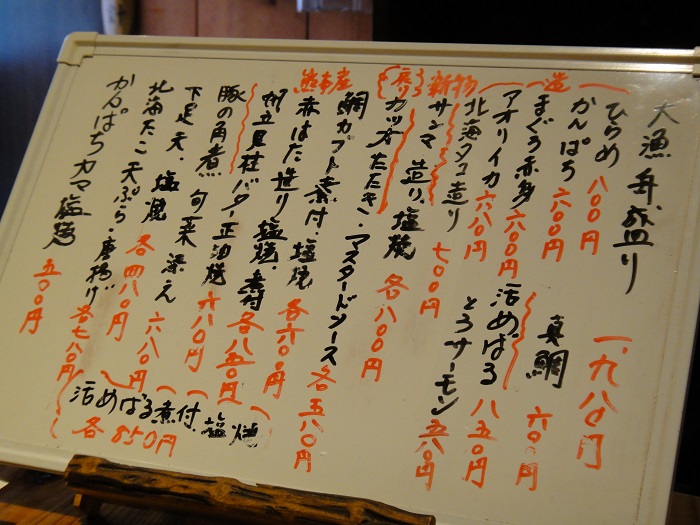 大漁舟盛り 一、九八〇円
造
ひらめ 八〇〇円
かんぱち 六〇〇円
真鯛 六〇〇円
まぐろ赤身 六〇〇円
活めばる 八五〇円
アオリイカ 六八〇円
とろサーモン 五八〇円
北海タコ造り 七〇〇円
新物
サンマ 造り、塩焼 各八〇〇円
戻り
カツオたたき・マスタードソース 各五八〇円
鯛カブト煮付 塩焼 各六〇〇円
熊本産
赤はた造り 塩焼・煮付 各八五〇円
帆立貝柱バター正油焼 六八〇円
豚の角煮 旬菜添え 六八〇円
下足天・塩焼 各四八〇円
北海たこ天ぷら・唐揚げ 各七八〇円
かんぱちカマ塩焼 五〇〇円
活めばる煮付、塩焼
各850円